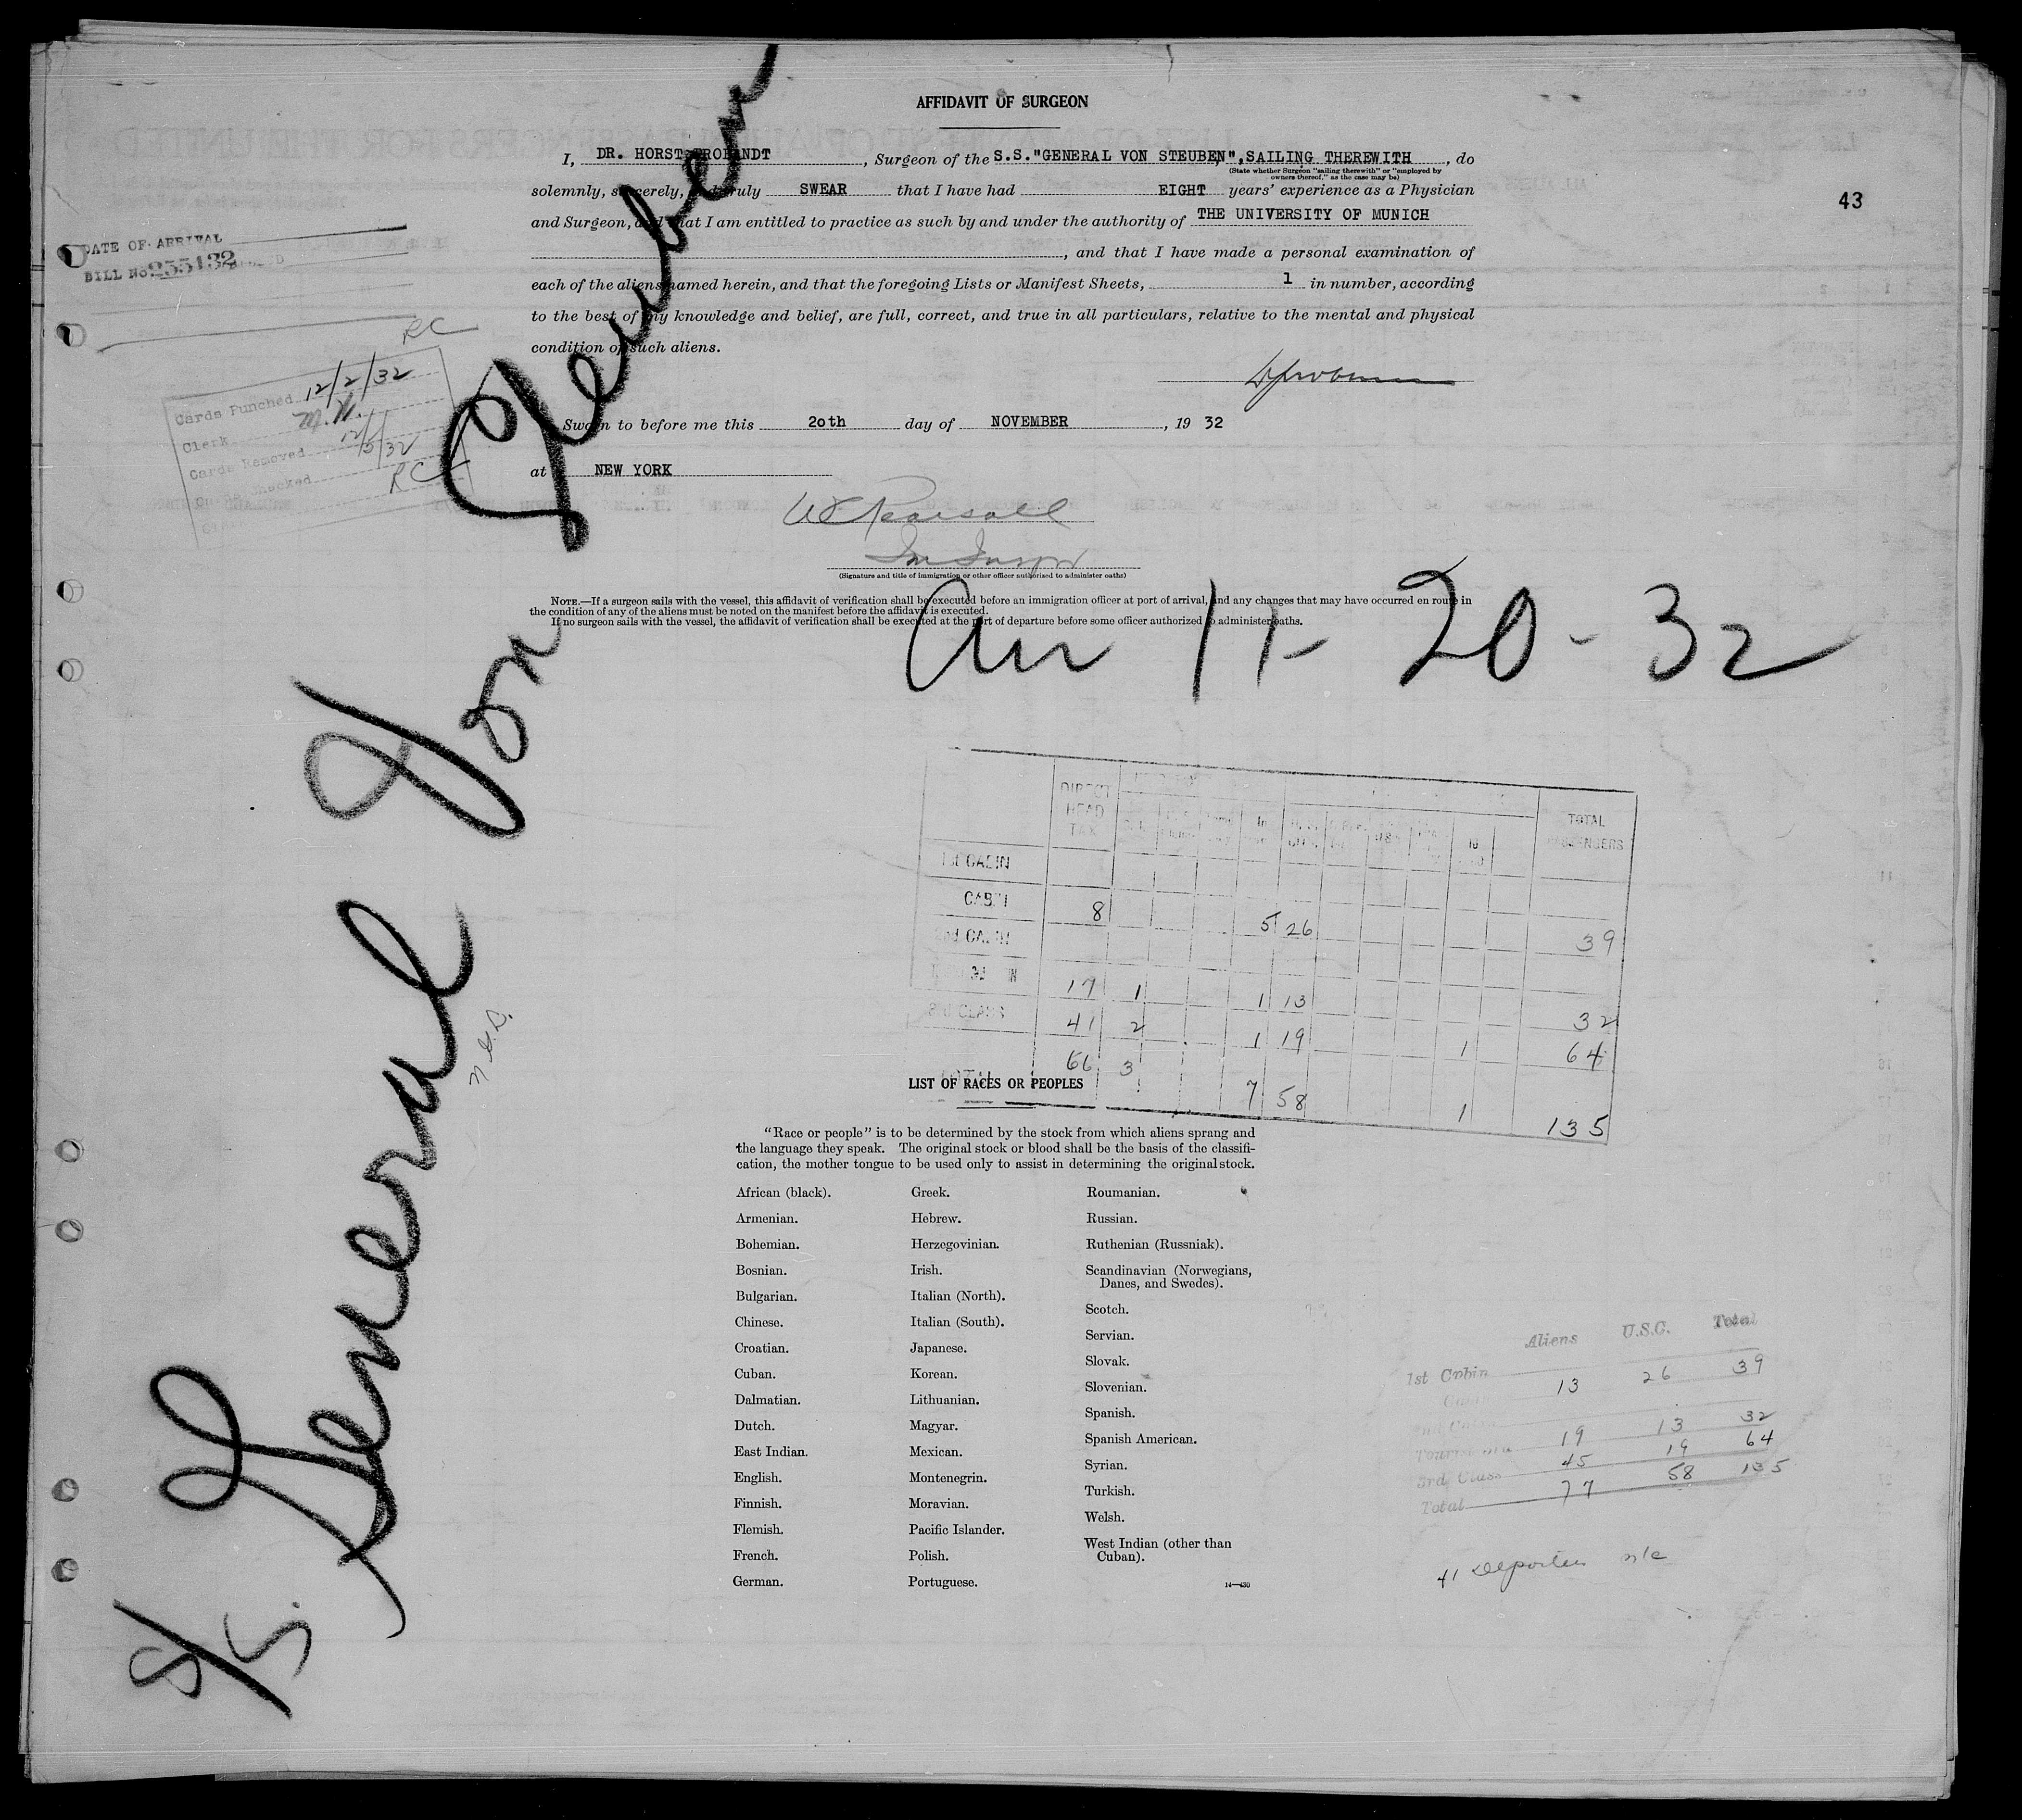 AFFIDAVIT OF SURGEON
I, DR. HORST PROBANDT, Surgeon of the S.S."GENERAL VON STEUBEN", SAILING THEREWITH, do
(State whether Surgeon "sailing therewith" or "employed by
owners thereof," as the case may be)
solemnly, sincerely, and truly SWEAR that I have had EIGHT years' experience as a Physician
43
and Surgeon, and that I am entitled to practice as such by and under the authority of THE UNIVERSITY OF MUNICH
, and that I have made a personal examination of
each of the aliens named herein, and that the foregoing Lists or Manifest Sheets, 1 in number, according
to the best of my knowledge and belief, are full, correct, and true in all particulars, relative to the mental and physical
condition of such aliens.
Sworn to before me this 20th day of NOVEMBER, 19 32
at NEW YORK
W C Pearsall
Im Inspr
(Signature and title of immigration or other officer authorized to administer oaths)
NOTE.—If a surgeon sails with the vessel, this affidavit of verification shall be executed before an immigration officer at port of arrival, and any changes that may have occurred en route in
the condition of any of the aliens must be noted on the manifest before the affidavit is executed.
If no surgeon sails with the vessel, the affidavit of verification shall be executed at the port of departure before some officer authorized to administer oaths.
DATE OF ARRIVAL
BILL No. 255132
RC
Cards Punched 12/2/32
Clerk M.N.
Cards Removed 12/5/32
Checked RC
S/S. General Von Steuben
Arr 11-20-32
DIRECT HEAD TAX
TOTAL PASSENGERS
1st CABIN
CABIN 8 5 26 39
2nd CABIN
17 1 1 13 32
3rd CLASS 41 2 1 19 1 64
66 3 7 58 1 135
LIST OF RACES OR PEOPLES
"Race or people" is to be determined by the stock from which aliens sprang and
the language they speak. The original stock or blood shall be the basis of the classifi-
cation, the mother tongue to be used only to assist in determining the original stock.
African (black).
Armenian.
Bohemian.
Bosnian.
Bulgarian.
Chinese.
Croatian.
Cuban.
Dalmatian.
Dutch.
East Indian.
English.
Finnish.
Flemish.
French.
German.
Greek.
Hebrew.
Herzegovinian.
Irish.
Italian (North).
Italian (South).
Japanese.
Korean.
Lithuanian.
Magyar.
Mexican.
Montenegrin.
Moravian.
Pacific Islander.
Polish.
Portuguese.
Roumanian.
Russian.
Ruthenian (Russniak).
Scandinavian (Norwegians,
Danes, and Swedes).
Scotch.
Servian.
Slovak.
Slovenian.
Spanish.
Spanish American.
Syrian.
Turkish.
Welsh.
West Indian (other than
Cuban).
14—430
Aliens U.S.C. Total
1st Cabin 13 26 39
Tourist 3rd 19 13 32
3rd Class 45 19 64
Total 77 58 135